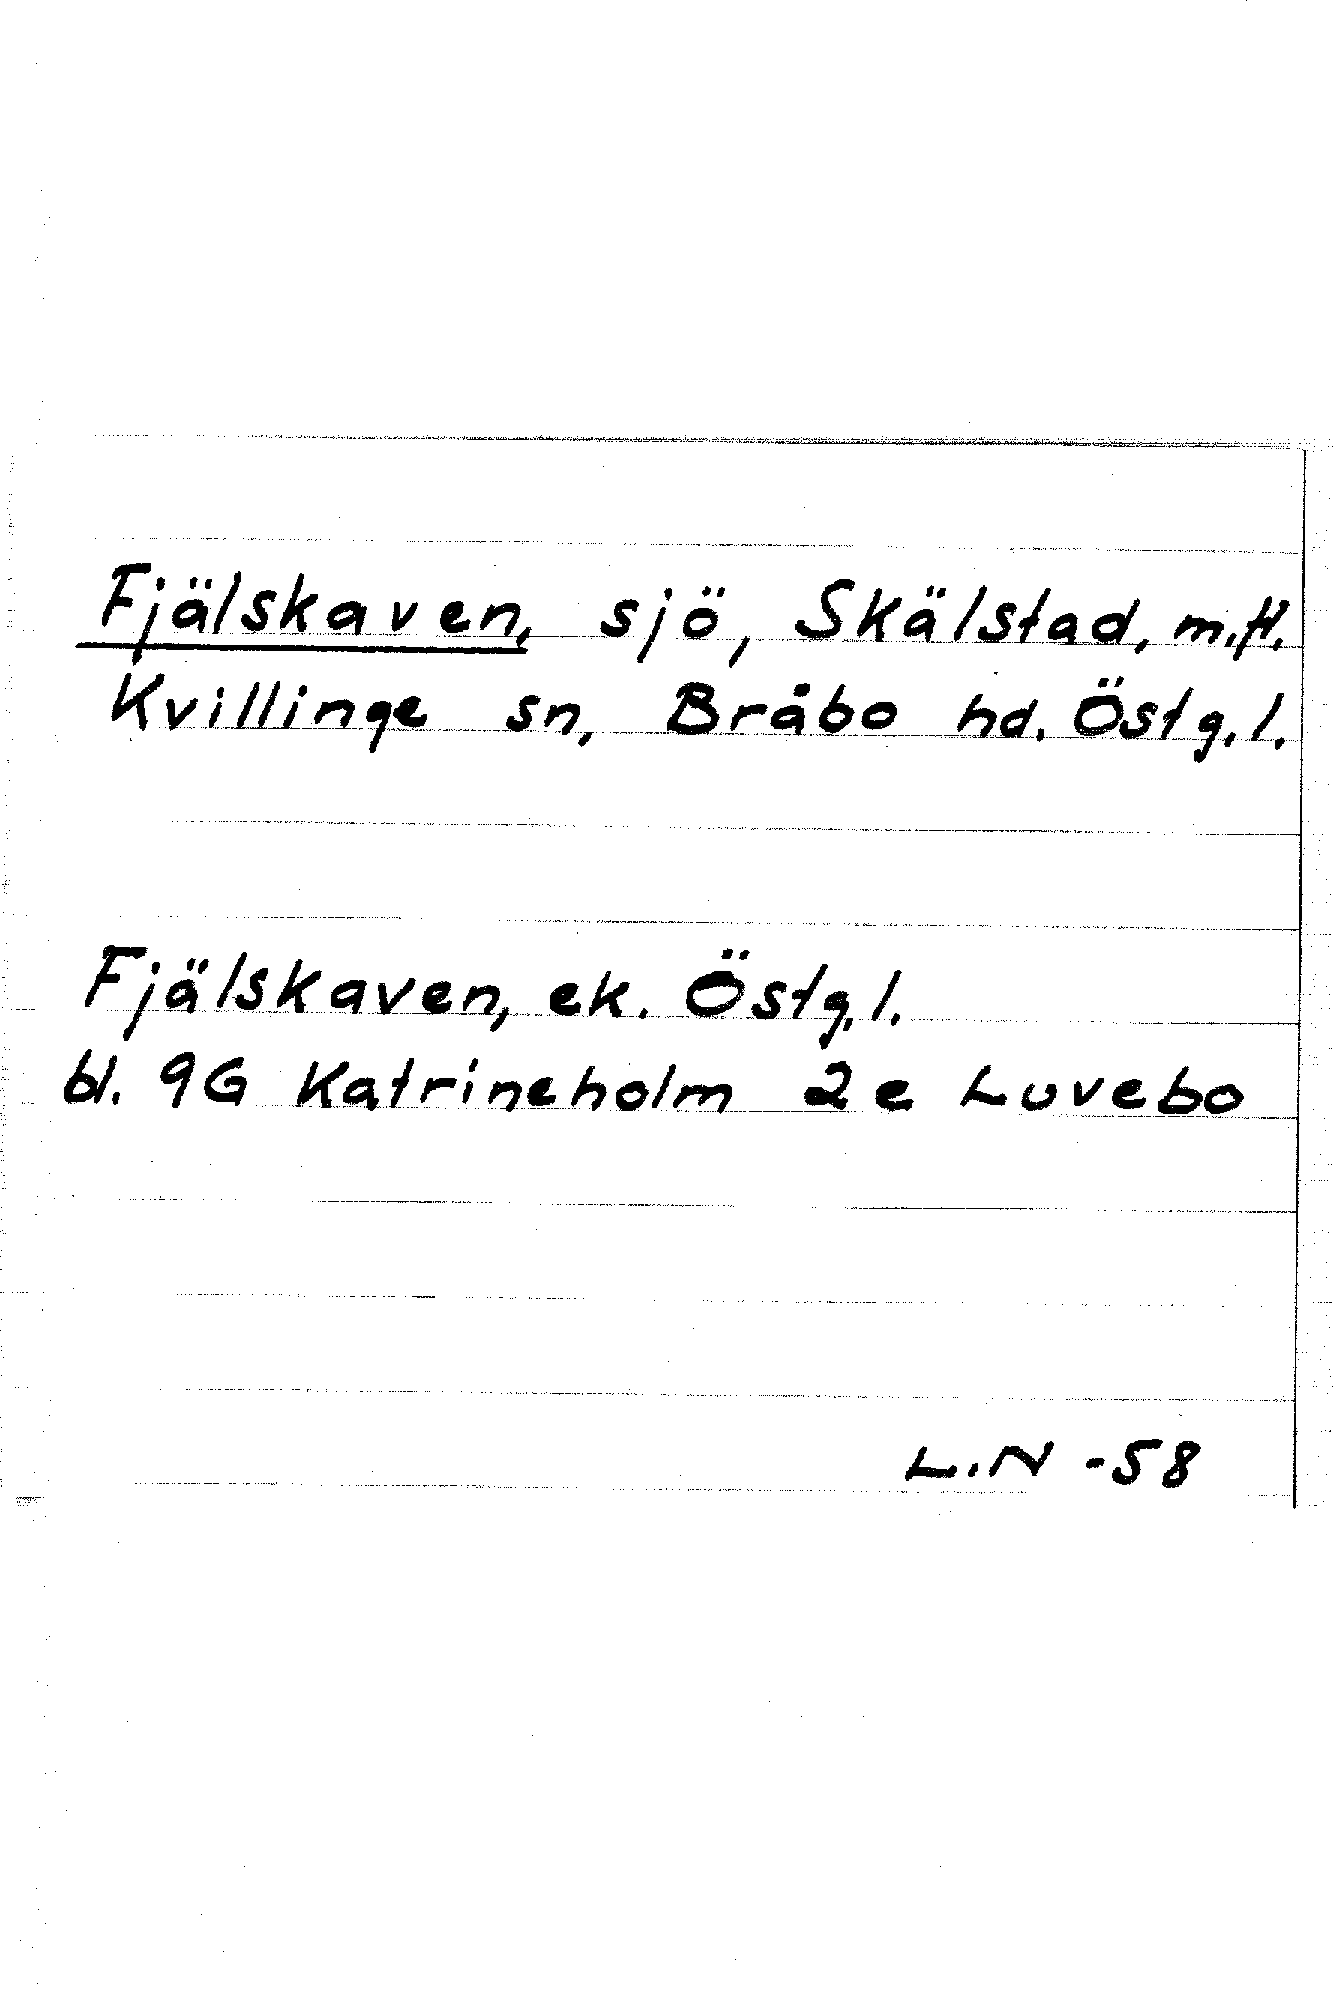 Fjälskaven, sjö, Skälstad, m.fl.
Kvillinge sn, Bråbo hd. Östg. l.
Fjälskaven, ek. Östg. l.
bl. 9G Katrineholm 2e Luvebo
L.N -58